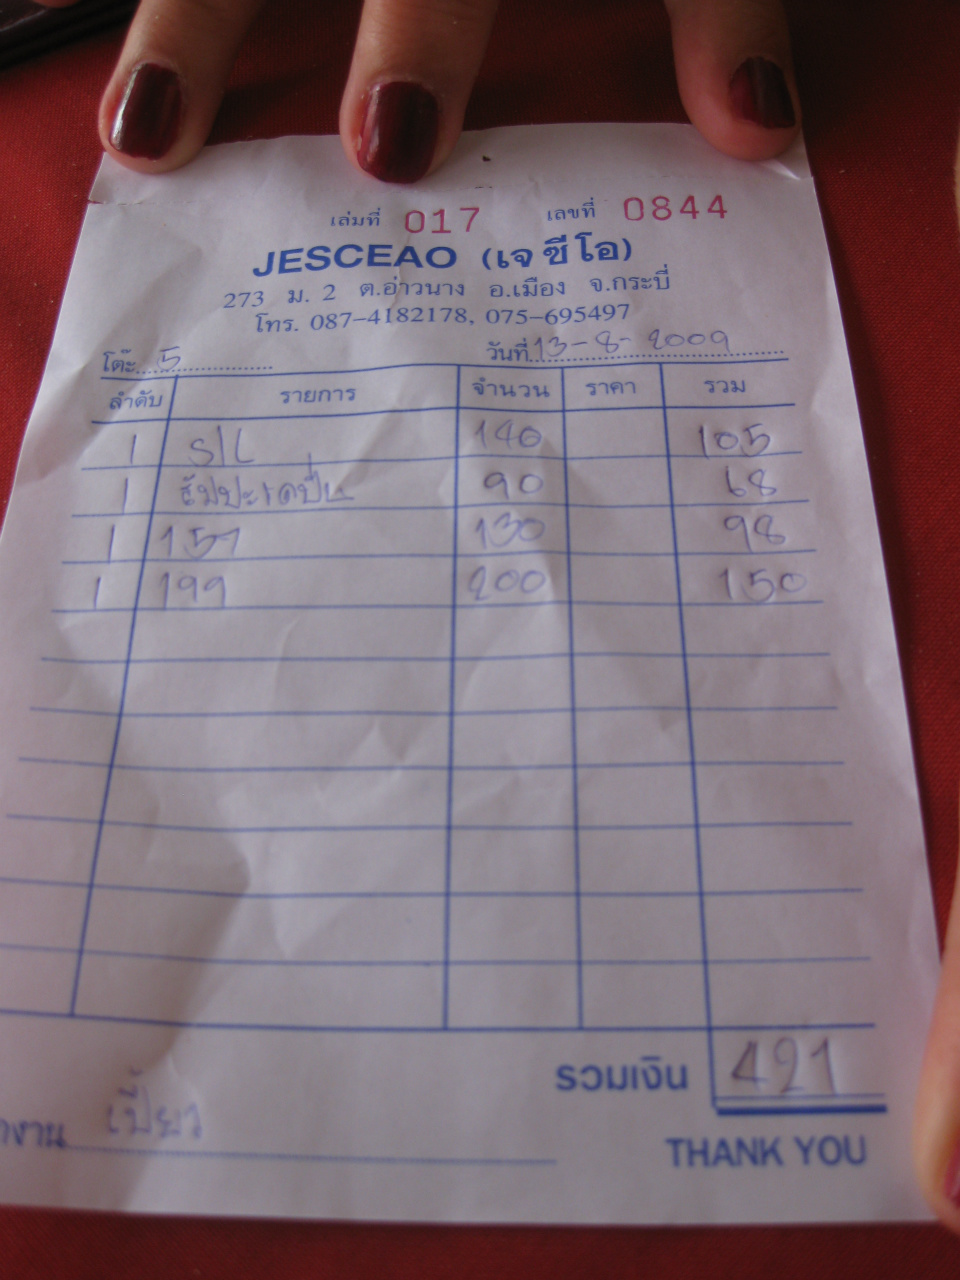 เล่มที่ 017 เลขที่ 0844
JESCEAO (เจซีโอ)
273 ม. 2 ต.อ่าวนาง อ.เมือง จ.กระบี่
โทร. 087-4182178, 075-695497
โต๊ะ 5 วันที่ 13-8-2009
ลำดับ รายการ จำนวน ราคา รวม
1 S/L 140 105
1 90 68
1 157 130 98
1 199 200 150
รวมเงิน 421
งาน เปี๊ยว
THANK YOU